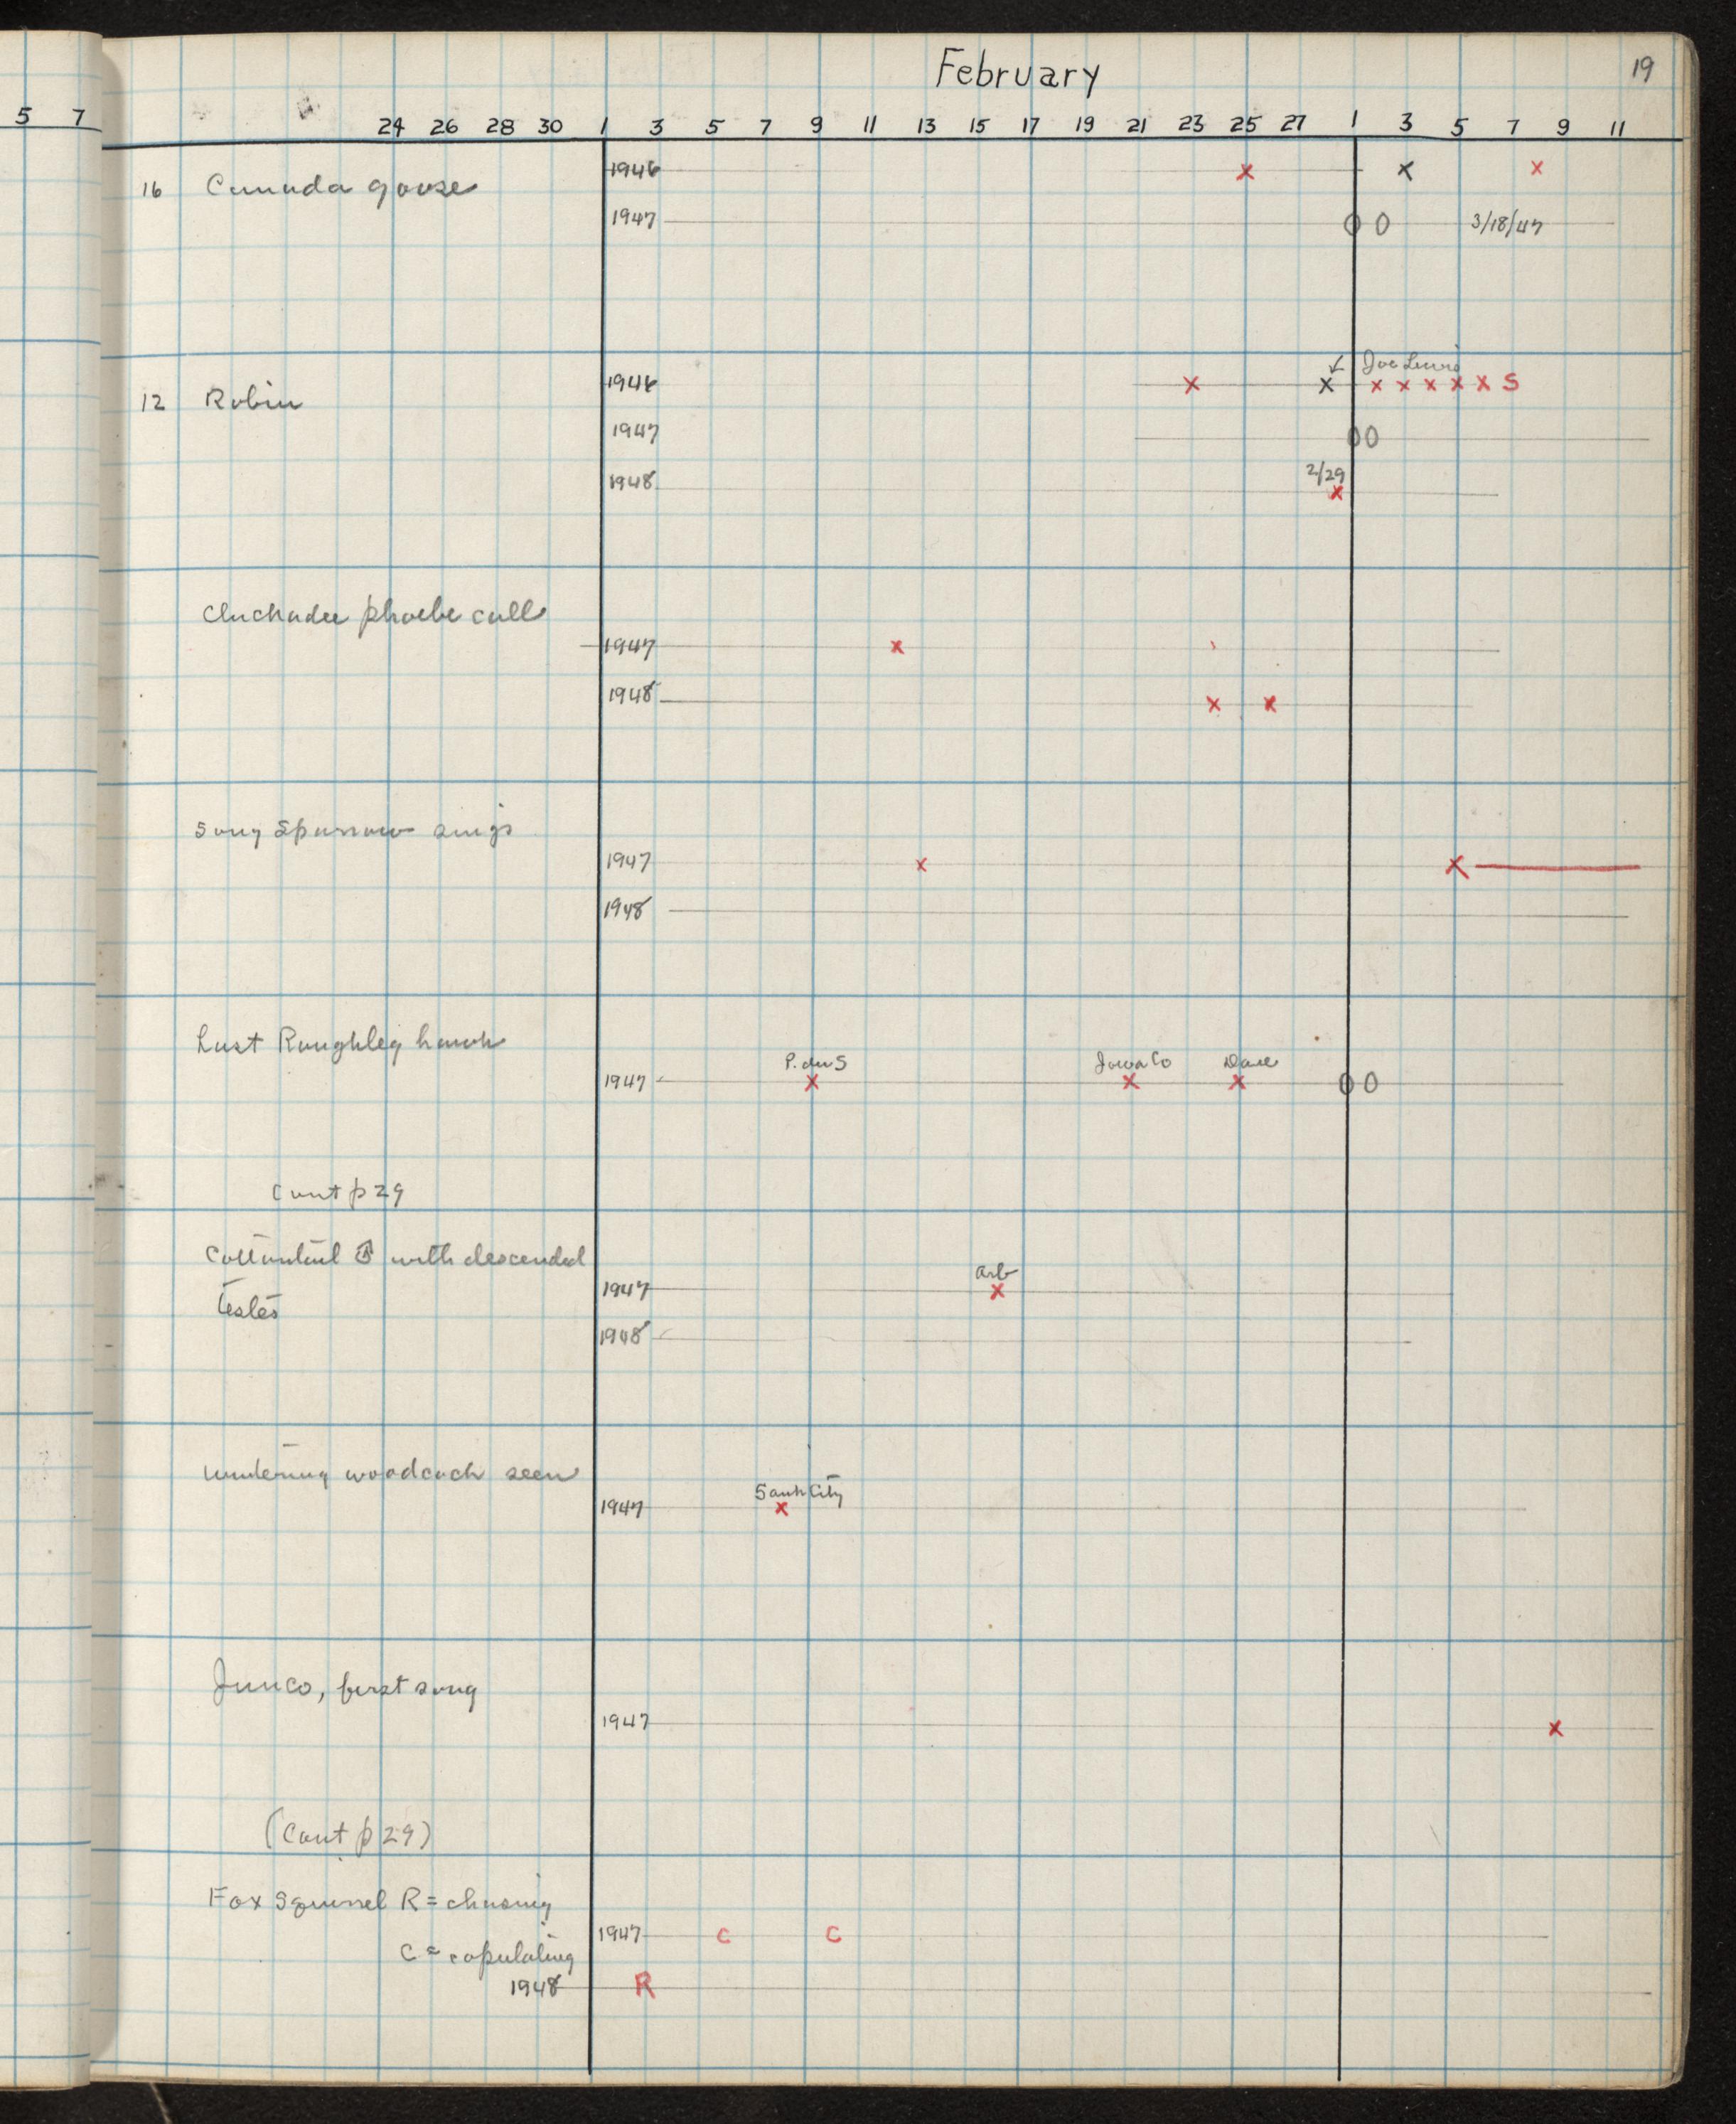 February
19
5 7 24 26 28 30 1 3 5 7 9 11 13 15 17 19 21 23 25 27 1 3 5 7 9 11
1946 x x x
16 Canada goose
1947 0 0 3/18/47
↙ Joe Lewis
1946 x x x x x x x S
12 Robin
1947 0 0
2/29
1948 x
Chickadee phoebe call
1947 x
1948 x x
Song Sparrow sings
1947 x x
1948
Last Roughleg hawk
P. du S Iowa Co Dane
1947 x x x 0 0
Cont p 29
Cottontail ♂ with descended
Arb
1947 x
testes
1948
Wintering woodcock seen
Sauk City
1947 x
Junco, first song
1947 x
(Cont p 29)
Fox Squirrel R = chasing
1947 C C
C = copulating
1948 R